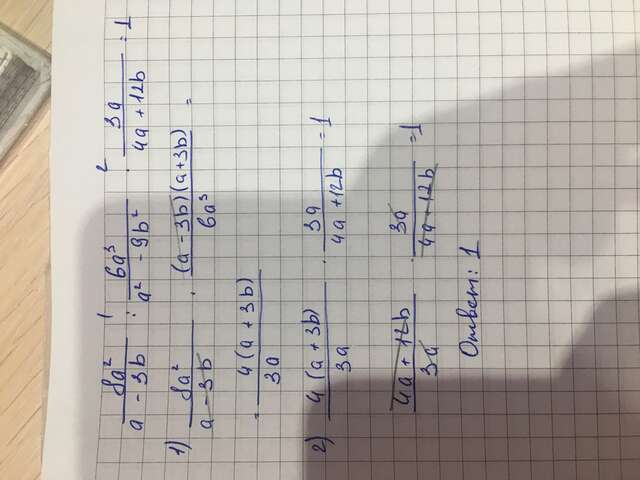 8a² / (a - 3b) :¹ 6a³ / (a² - 9b²) ·² 3a / (4a + 12b) = 1
1) 8a² / (a - 3b) · (a - 3b)(a + 3b) / 6a³ =
= 4(a + 3b) / 3a
2) 4(a + 3b) / 3a · 3a / (4a + 12b) = 1
(4a + 12b) / 3a · 3a / (4a + 12b) = 1
Ответ: 1